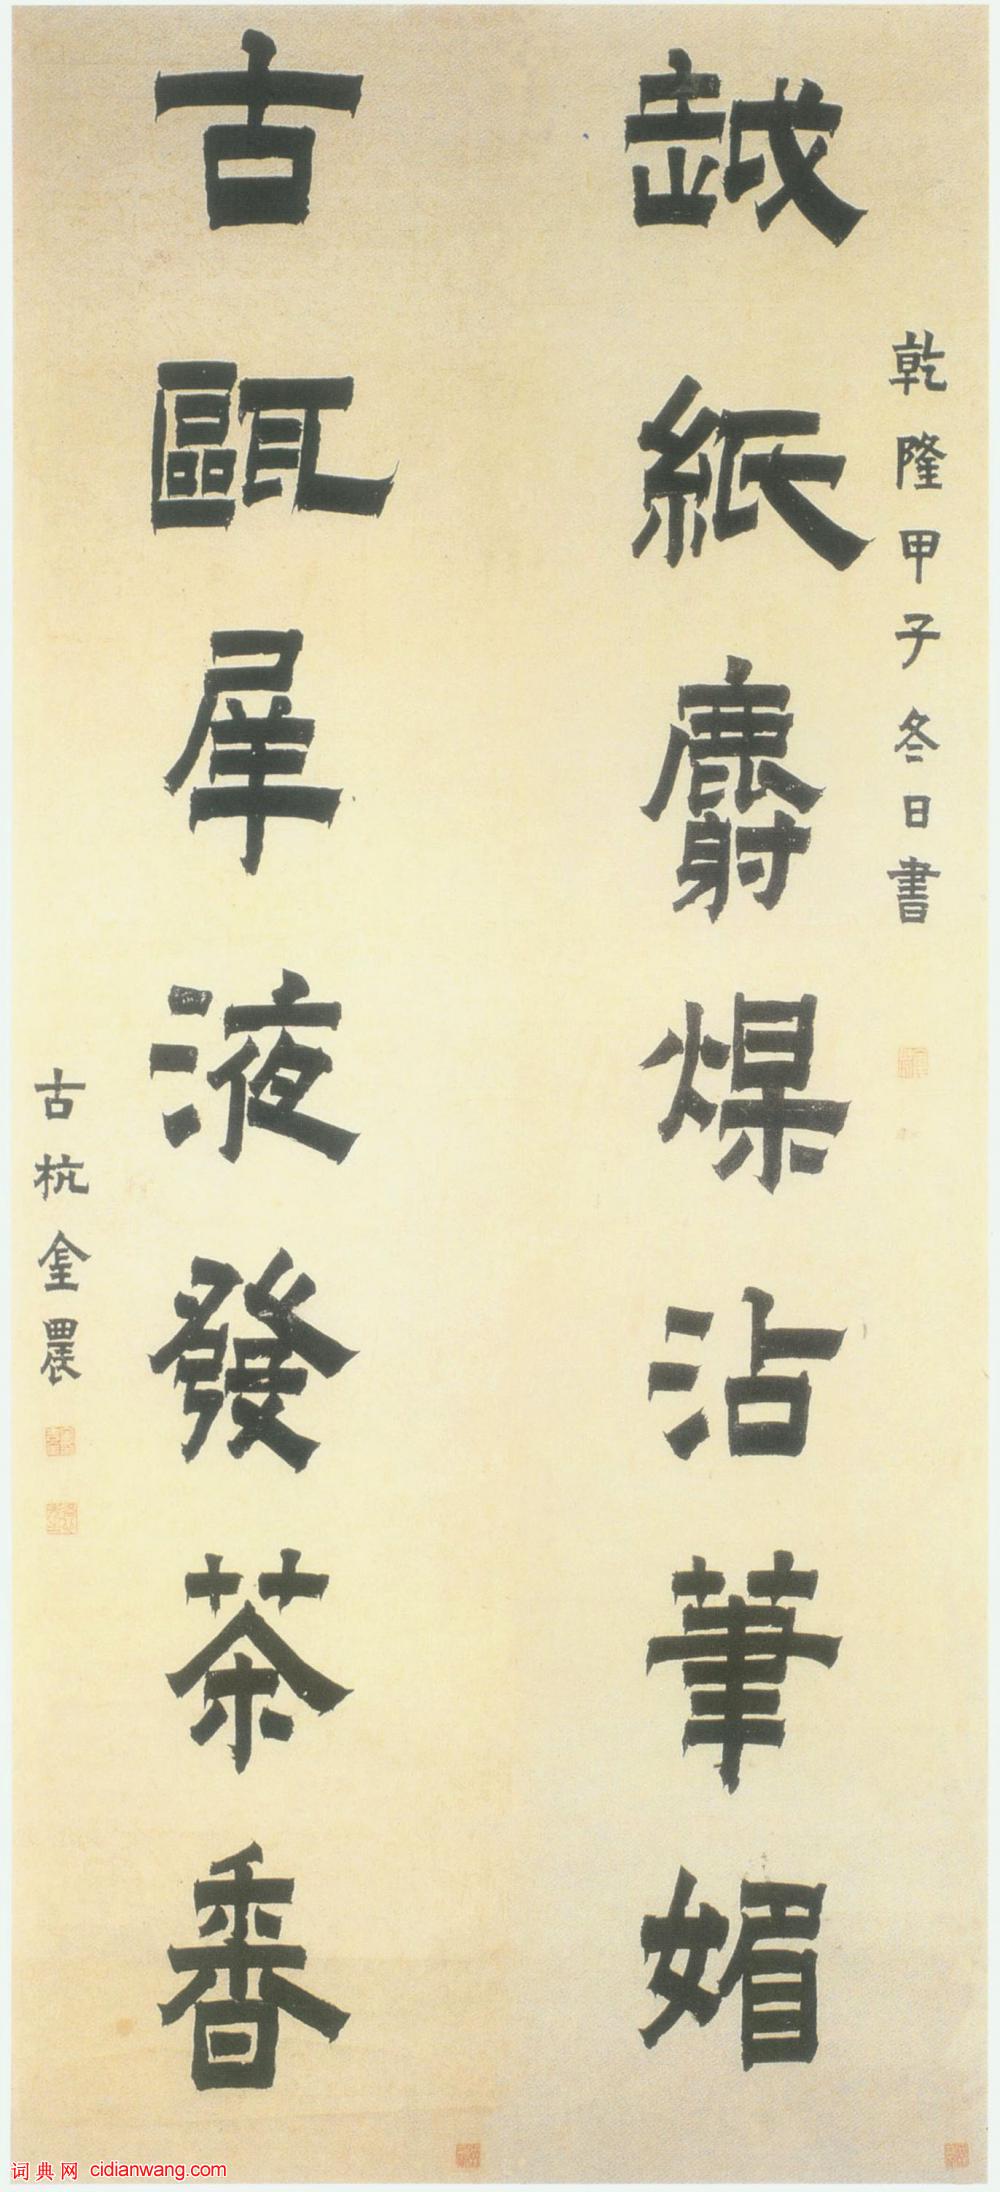 越紙麝煤沾筆媚
乾隆甲子冬日書
古甌犀液發茶香
古杭金農
词典网 cidianwang.com